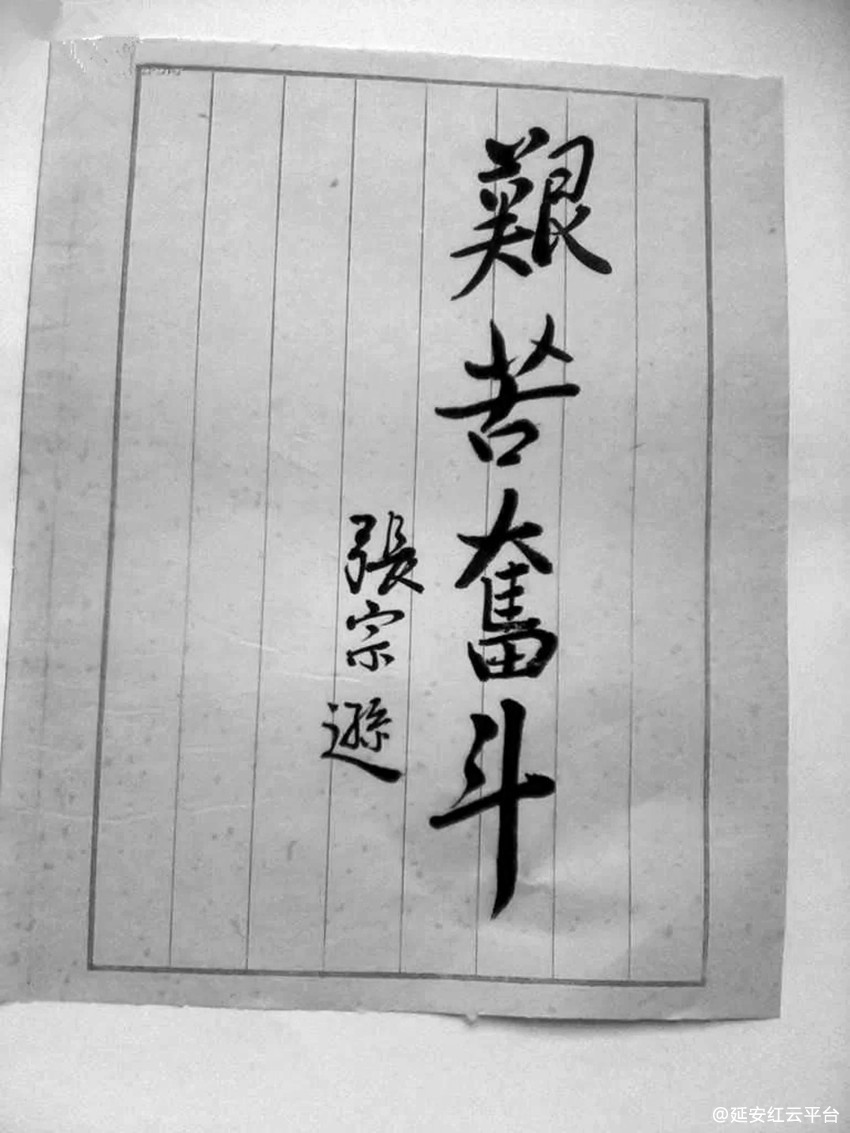 艱苦奮斗
張宗遜
@延安红云平台